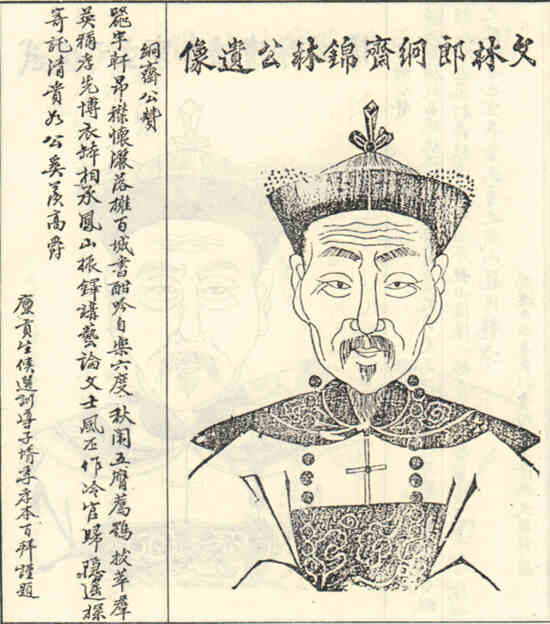 文林郎絅齊錦林公遺像
絅齋公贊
器宇軒昂襟懷灑落擁百城書酣吟自樂六度秋闈五膺薦鶚拔萃羣
英稱孝先博衣缽相承鳳山振鐸講藝論文士風丕作冷官歸隱遙
寄託清貴如公奚羨高爵
廩貢生候選訓導子壻本百拜謹題